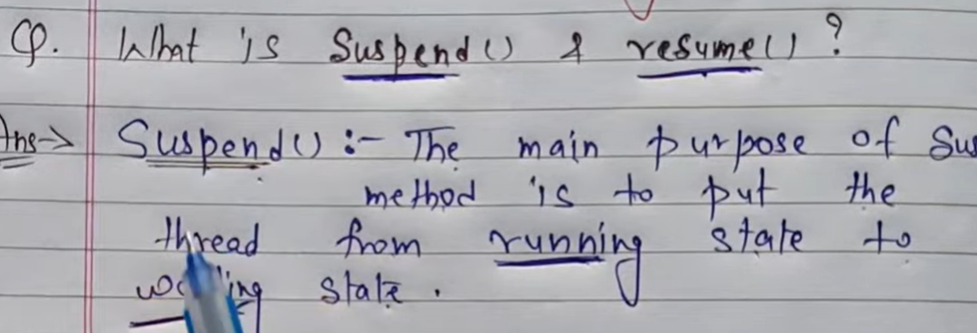 Q. What is Suspend() & resume()?
Ans-> Suspend() :- The main purpose of
method is to put the
thread from running state to
state.